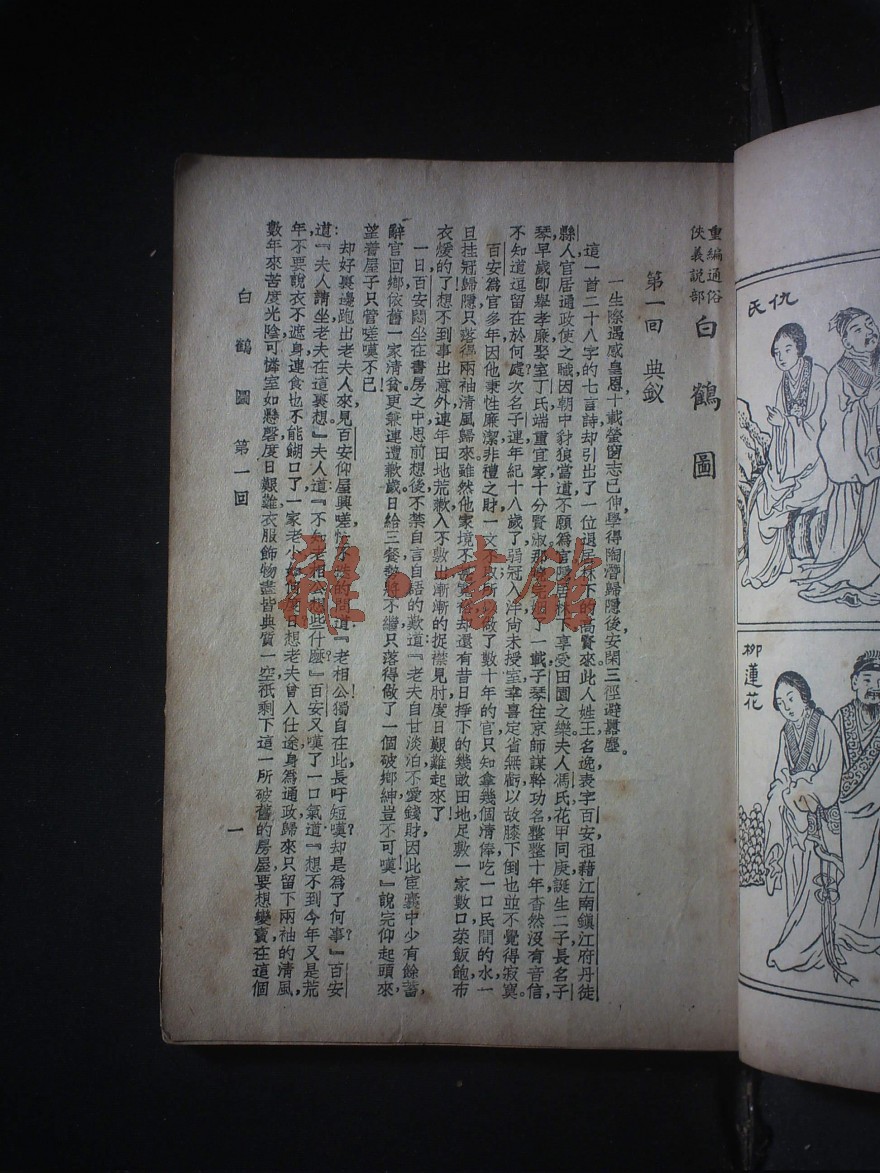 重編通俗
俠義說部
白鶴圖
第一回 典釵
一生際遇感皇恩、十載螢窗志已伸、學得陶潛歸隱後、安閑三徑避囂塵。
這一首二十八字的七言詩、却引出了一位退居林下的高賢來、此人姓王名逸、表字百安、祖籍江南鎮江府丹徒
縣人、官居通政使之職、因朝中豺狼當道、不願爲官、隱居林下、享受田園之樂、夫人馮氏、花甲同庚、誕生二子、長名子
琴、早歲卽舉孝廉、娶室丁氏、端重宜家、十分賢淑、那 了一載、子琴往京師謀幹功名、整整十年、杳然沒有音信、
不知道逗留在於何處、次名子連、年紀十八歲了、弱冠入泮、尚未授室、幸喜定省無虧、以故膝下倒也並不覺得寂寞。
百安爲官多年、因他秉性廉潔、非禮之財、一文不取、所以做了數十年的官、只知拿幾個清俸、吃一口民間的水、一
旦挂冠歸隱、只落得兩袖清風歸來、雖然他家境不甚 、却還有昔日掙下的幾畝田地、足敷一家數口、菜飯飽布
衣煖的了、想不到事出意外、連年田地荒歉、入不敷出、漸漸的捉襟見肘、度日艱難起來了！
一日百安悶坐在書房之中、思前想後、不禁自言自語的歎道：『老夫自甘淡泊、不愛錢財、因此宦囊中少有餘蓄、
辭官回鄉、依舊一家清貧、更兼連遭歉歲、日給三餐、勢將不繼、只落得做了一個破鄉紳、豈不可嘆！』說完仰起頭來、
望着屋子只管嗟嘆不已！
却好裏邊跑出老夫人來、見百安仰屋興嗟、 的問道：『老相公獨自在此長吁短嘆、却是爲了何事？』百安
道：『夫人請坐、老夫在這裏想。』夫人道：『不知老相公想些什麼？』百安又嘆了一口氣道：『想不到今年又是荒
年、不要說衣不遮身、連食也不能餬口了、一家老小、如何度日、想老夫曾入仕途、身爲通政、歸來只留下兩袖的清風、
數年來苦度光陰、可憐室如懸磬、度日艱難、衣服飾物、盡皆典質一空、祇剩下這一所破舊的房屋、要想變賣、在這個
白鶴圖 第一回
一
仇氏
柳蓮花
雅·書館